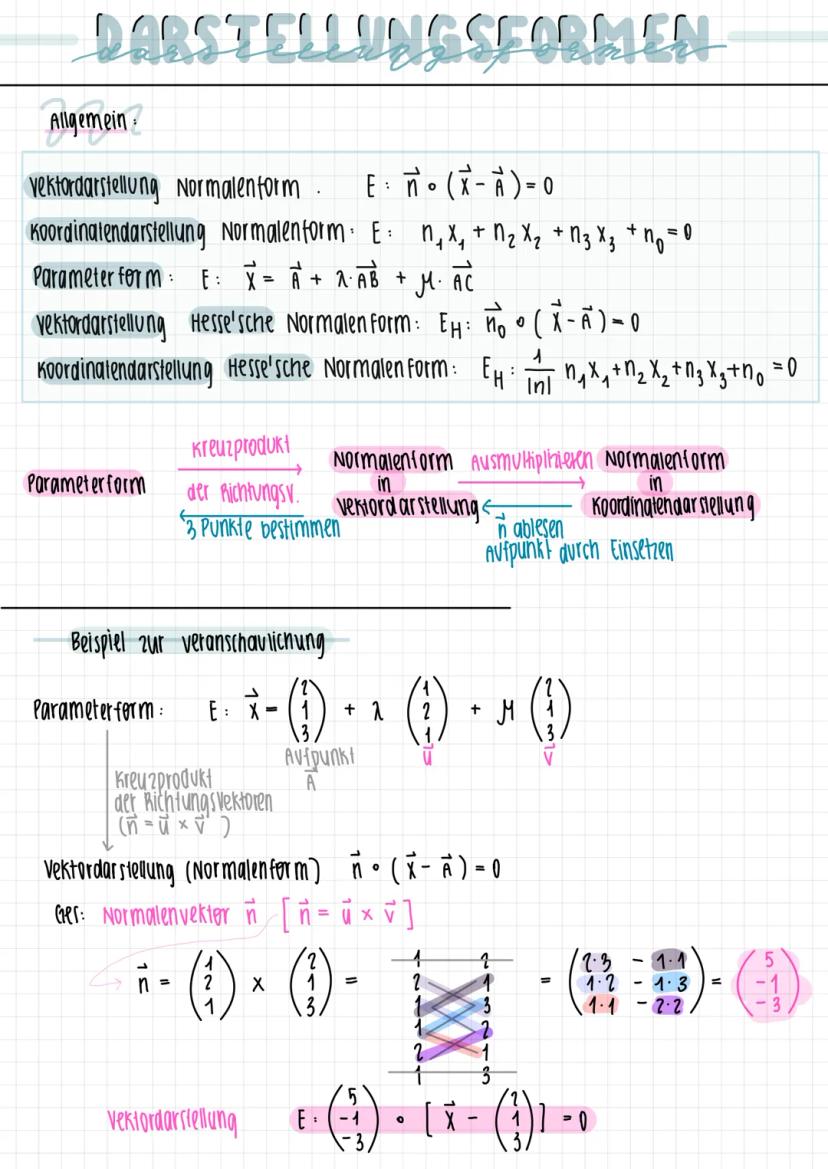 DARSTELLUNGSFORMEN
darstellungsformen
Allgemein:
Vektordarstellung Normalenform . E: n⃗ ∘ (x⃗ - A⃗) = 0
Koordinatendarstellung Normalenform: E: n₁x₁ + n₂x₂ + n₃x₃ + n₀ = 0
Parameterform: E: x⃗ = A⃗ + λ·AB⃗ + μ·AC⃗
Vektordarstellung Hesse'sche Normalenform: E_H: n⃗₀ ∘ (x⃗ - A⃗) = 0
Koordinatendarstellung Hesse'sche Normalenform: E_H: 1/|n| n₁x₁ + n₂x₂ + n₃x₃ + n₀ = 0
Parameterform
Kreuzprodukt
der Richtungsv.
3 Punkte bestimmen
Normalenform
in
Vektordarstellung
Ausmultiplizieren
n⃗ ablesen
Aufpunkt durch Einsetzen
Normalenform
in
Koordinatendarstellung
Beispiel zur Veranschaulichung
Parameterform: E: x⃗ = (2 1 3) + λ (1 2 1) + μ (2 1 3)
Aufpunkt u⃗ v⃗
A⃗
Kreuzprodukt
der Richtungsvektoren
(n⃗ = u⃗ × v⃗)
Vektordarstellung (Normalenform) n⃗ ∘ (x⃗ - A⃗) = 0
Ges: Normalenvektor n⃗ [n⃗ = u⃗ × v⃗]
n⃗ = (1 2 1) × (2 1 3) =
1 2
2 1
1 3
1 2
2 1
1 3
= (2·3 - 1·1
1·2 - 1·3
1·1 - 2·2) = (5 -1 -3)
Vektordarstellung E: (5 -1 -3) ∘ [x⃗ - (2 1 3)] = 0